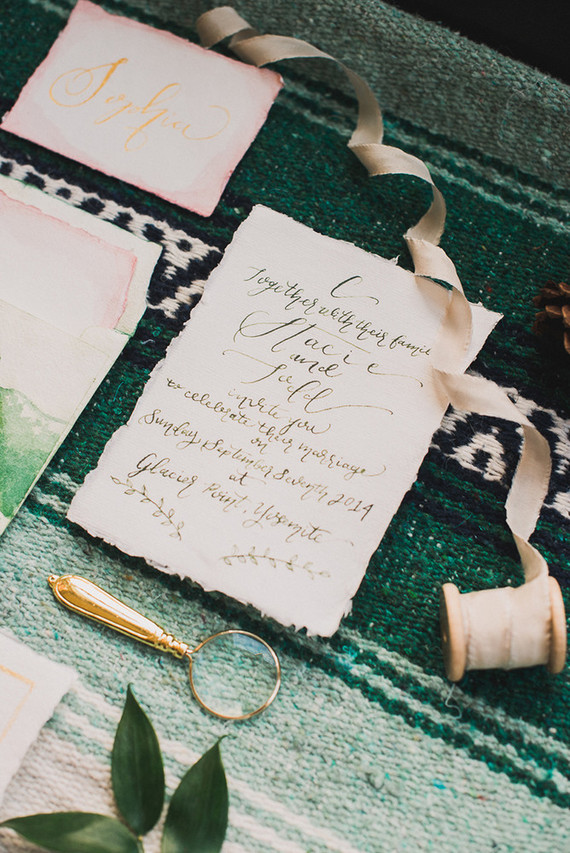 Sophia
Together with their famili
Stacie
and
Todd
invite you
to celebrate their marriage
on
Sunday, September Seventh 2014
at
Glacier Point, Yosemite